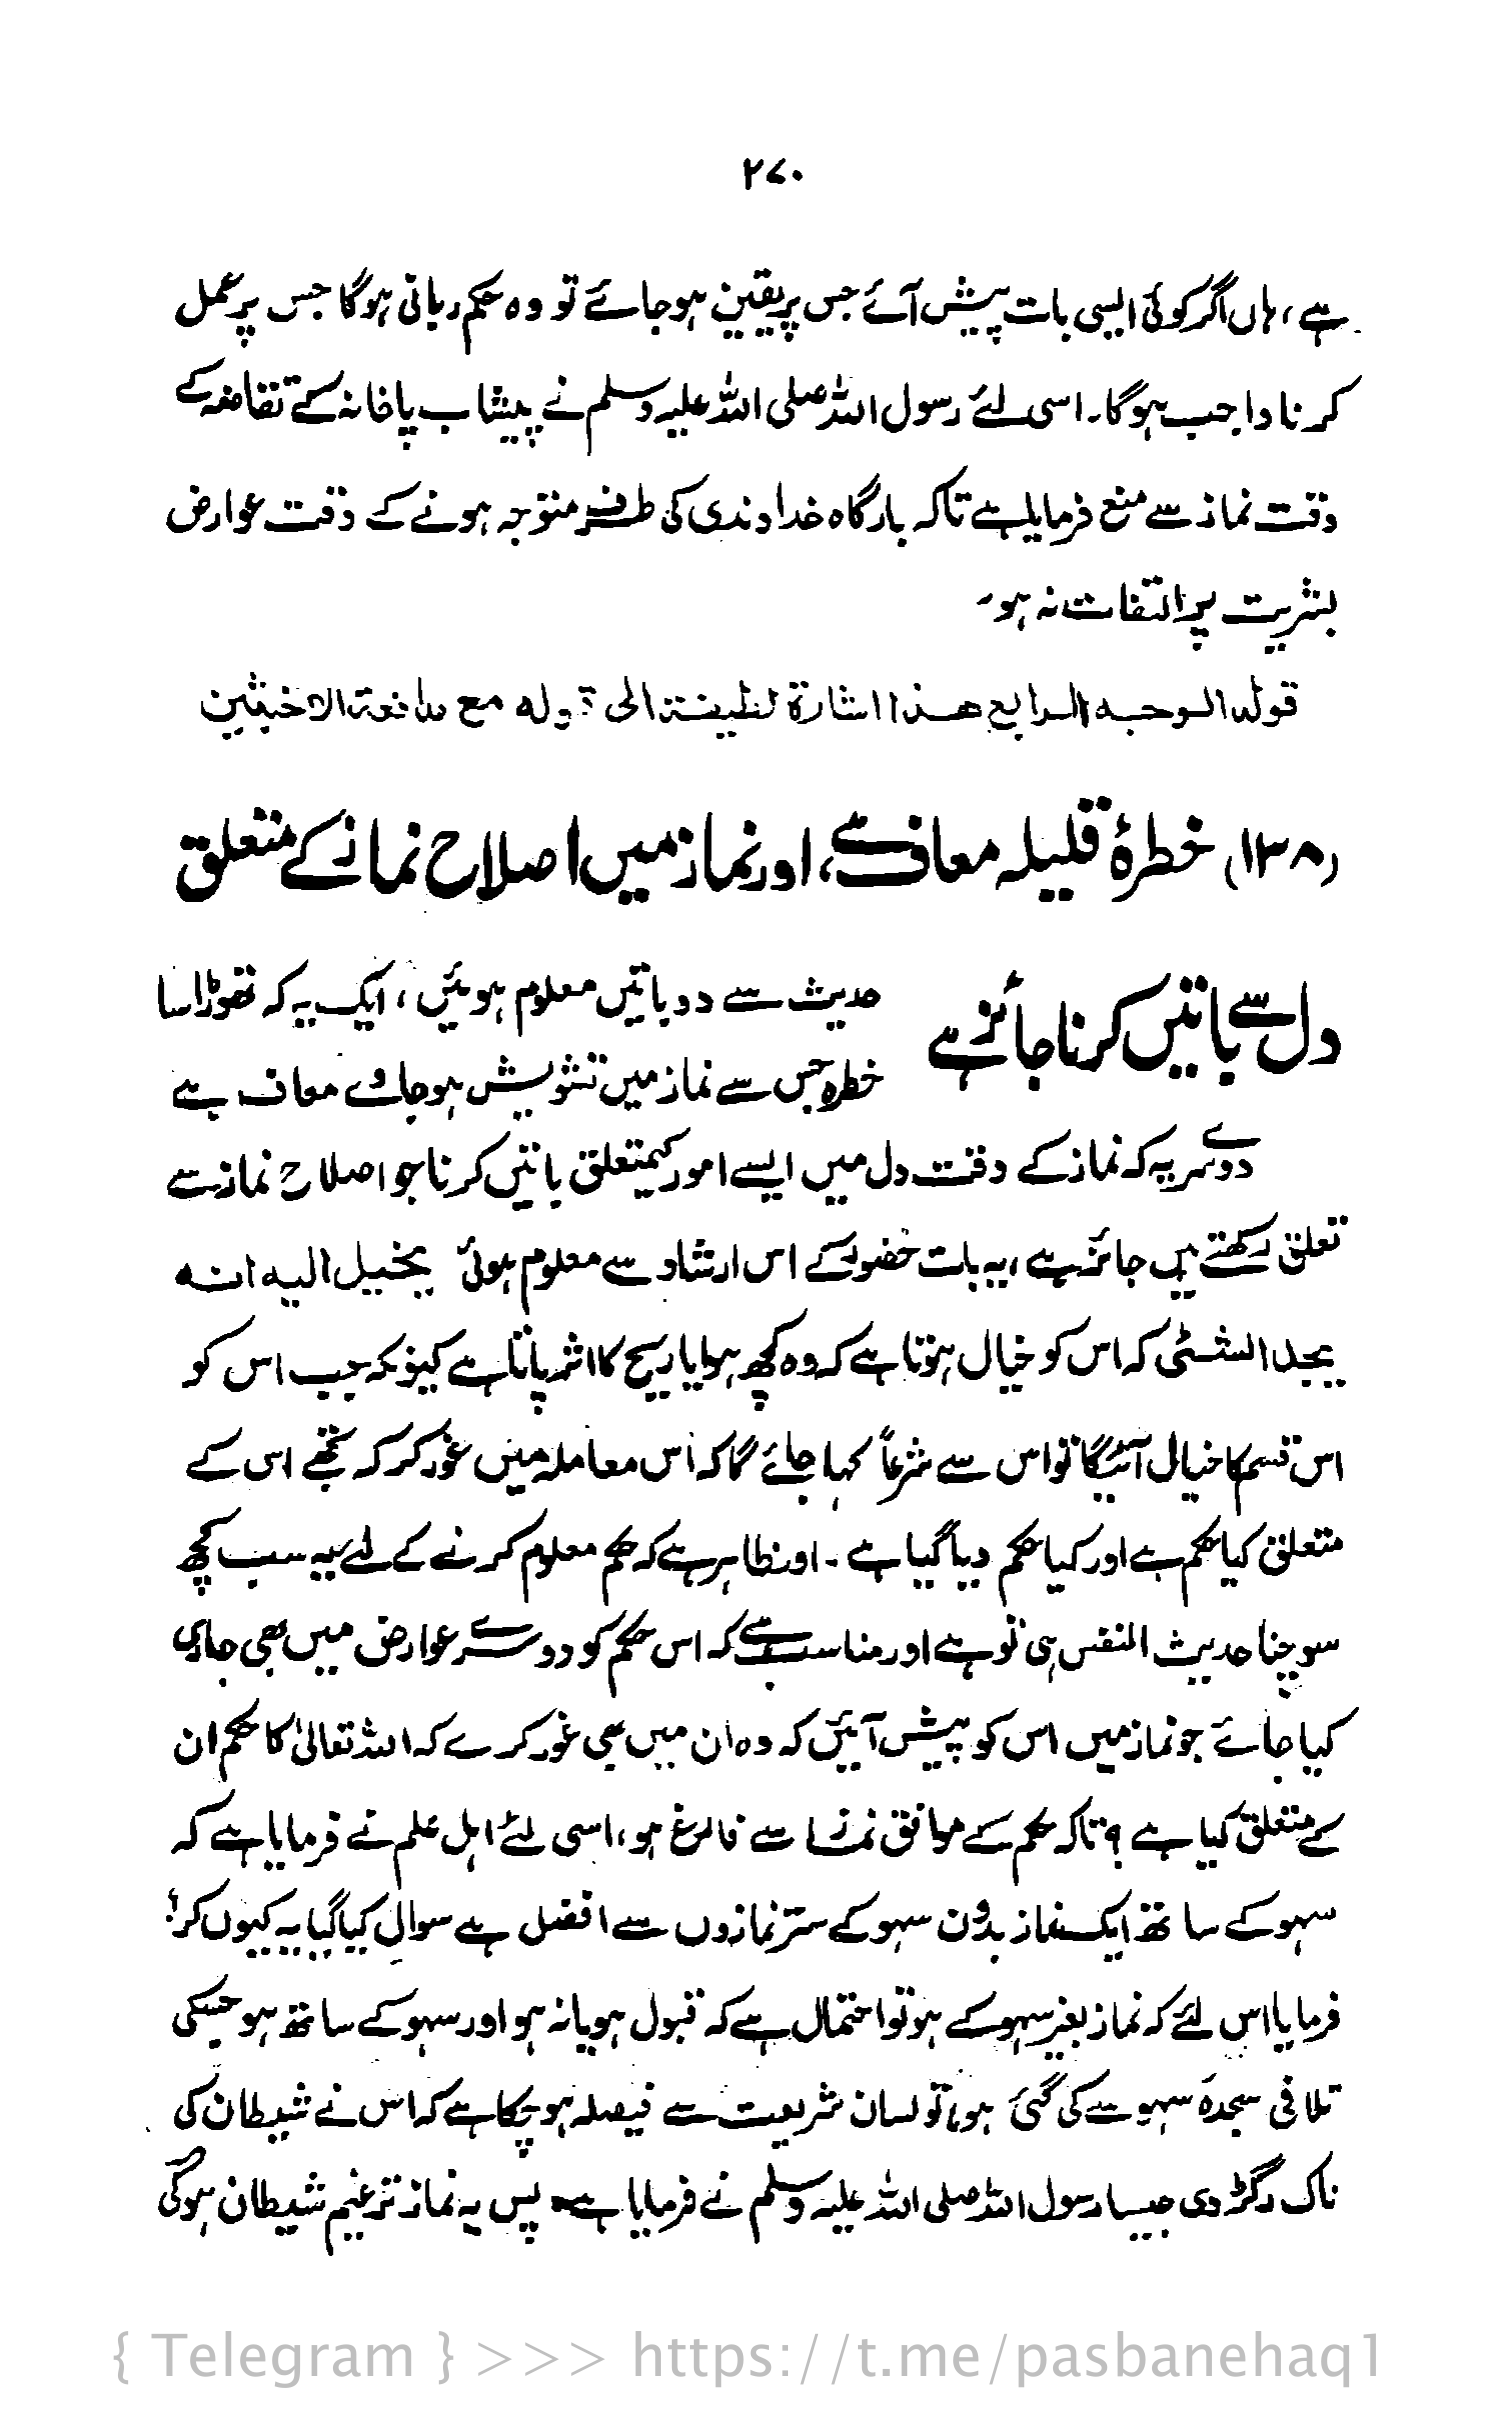 ۲۷۰
ہے، ہاں اگر کوئی ایسی بات پیش آئے جس پر یقین ہو جائے تو وہ حکم ربانی ہوگا جس پر عمل
کرنا واجب ہوگا۔ اسی لئے رسول اللہ صلی اللہ علیہ وسلم نے پیشاب پاخانہ کے تقاضہ کے
وقت نماز سے منع فرمایا ہے تاکہ بارگاہ خداوندی کی طرف متوجہ ہونے کے وقت عوارض
بشریت پر التفات نہ ہو۔
قوله الوجه الرابع هذا اشارة لطيفة الى قوله مع مدافعة الاخبثين
(۱۳۸) خطرۂ قلیلہ معاف ہے، اور نماز میں اصلاح نماز کے متعلق
دل سے باتیں کرنا جائز ہے
حدیث سے دو باتیں معلوم ہوئیں، ایک یہ کہ تھوڑا سا
خطرہ جس سے نماز میں تشویش ہو جاوے معاف ہے
دوسرے یہ کہ نماز کے وقت دل میں ایسے امور کے متعلق باتیں کرنا جو اصلاح نماز سے
تعلق رکھتے ہیں جائز ہے، یہ بات حضورؐ کے اس ارشاد سے معلوم ہوئی يخيل اليه انه
يجد الشئی کہ اس کو خیال ہوتا ہے کہ وہ کچھ ہوا یا ریح کا اثر پاتا ہے کیونکہ جب اس کو
اس قسم کا خیال آئیگا تو اس سے شرعاً کہا جائے گا کہ اس معاملہ میں غور کر کہ تجھے اس کے
متعلق کیا حکم ہے اور کیا حکم دیا گیا ہے۔ اور ظاہر ہے کہ حکم معلوم کرنے کے لئے یہ سب کچھ
سوچنا حدیث النفس ہی تو ہے اور مناسب ہے کہ اس حکم کو دوسرے عوارض میں بھی جاری
کیا جائے جو نماز میں اس کو پیش آئیں کہ وہ ان میں بھی غور کرے کہ اللہ تعالیٰ کا حکم ان
کے متعلق کیا ہے؟ تاکہ حکم کے موافق نماز سے فارغ ہو، اسی لئے اہل علم نے فرمایا ہے کہ
سہو کے ساتھ ایک نماز بدون سہو کے ستر نمازوں سے افضل ہے سوال کیا گیا یہ کیوں کر؟
فرمایا اس لئے کہ نماز بغیر سہو کے ہو تو احتمال ہے کہ قبول ہو یا نہ ہو اور سہو کے ساتھ ہو جسکی
تلافی سجدۂ سہو سے کی گئی ہو، تو لسان شریعت سے فیصلہ ہو چکا ہے کہ اس نے شیطان کی
ناک رگڑ دی جیسا رسول اللہ صلی اللہ علیہ وسلم نے فرمایا ہے، پس یہ نماز ترغیم شیطان ہوگی
{ Telegram } >>> https://t.me/pasbanehaq1